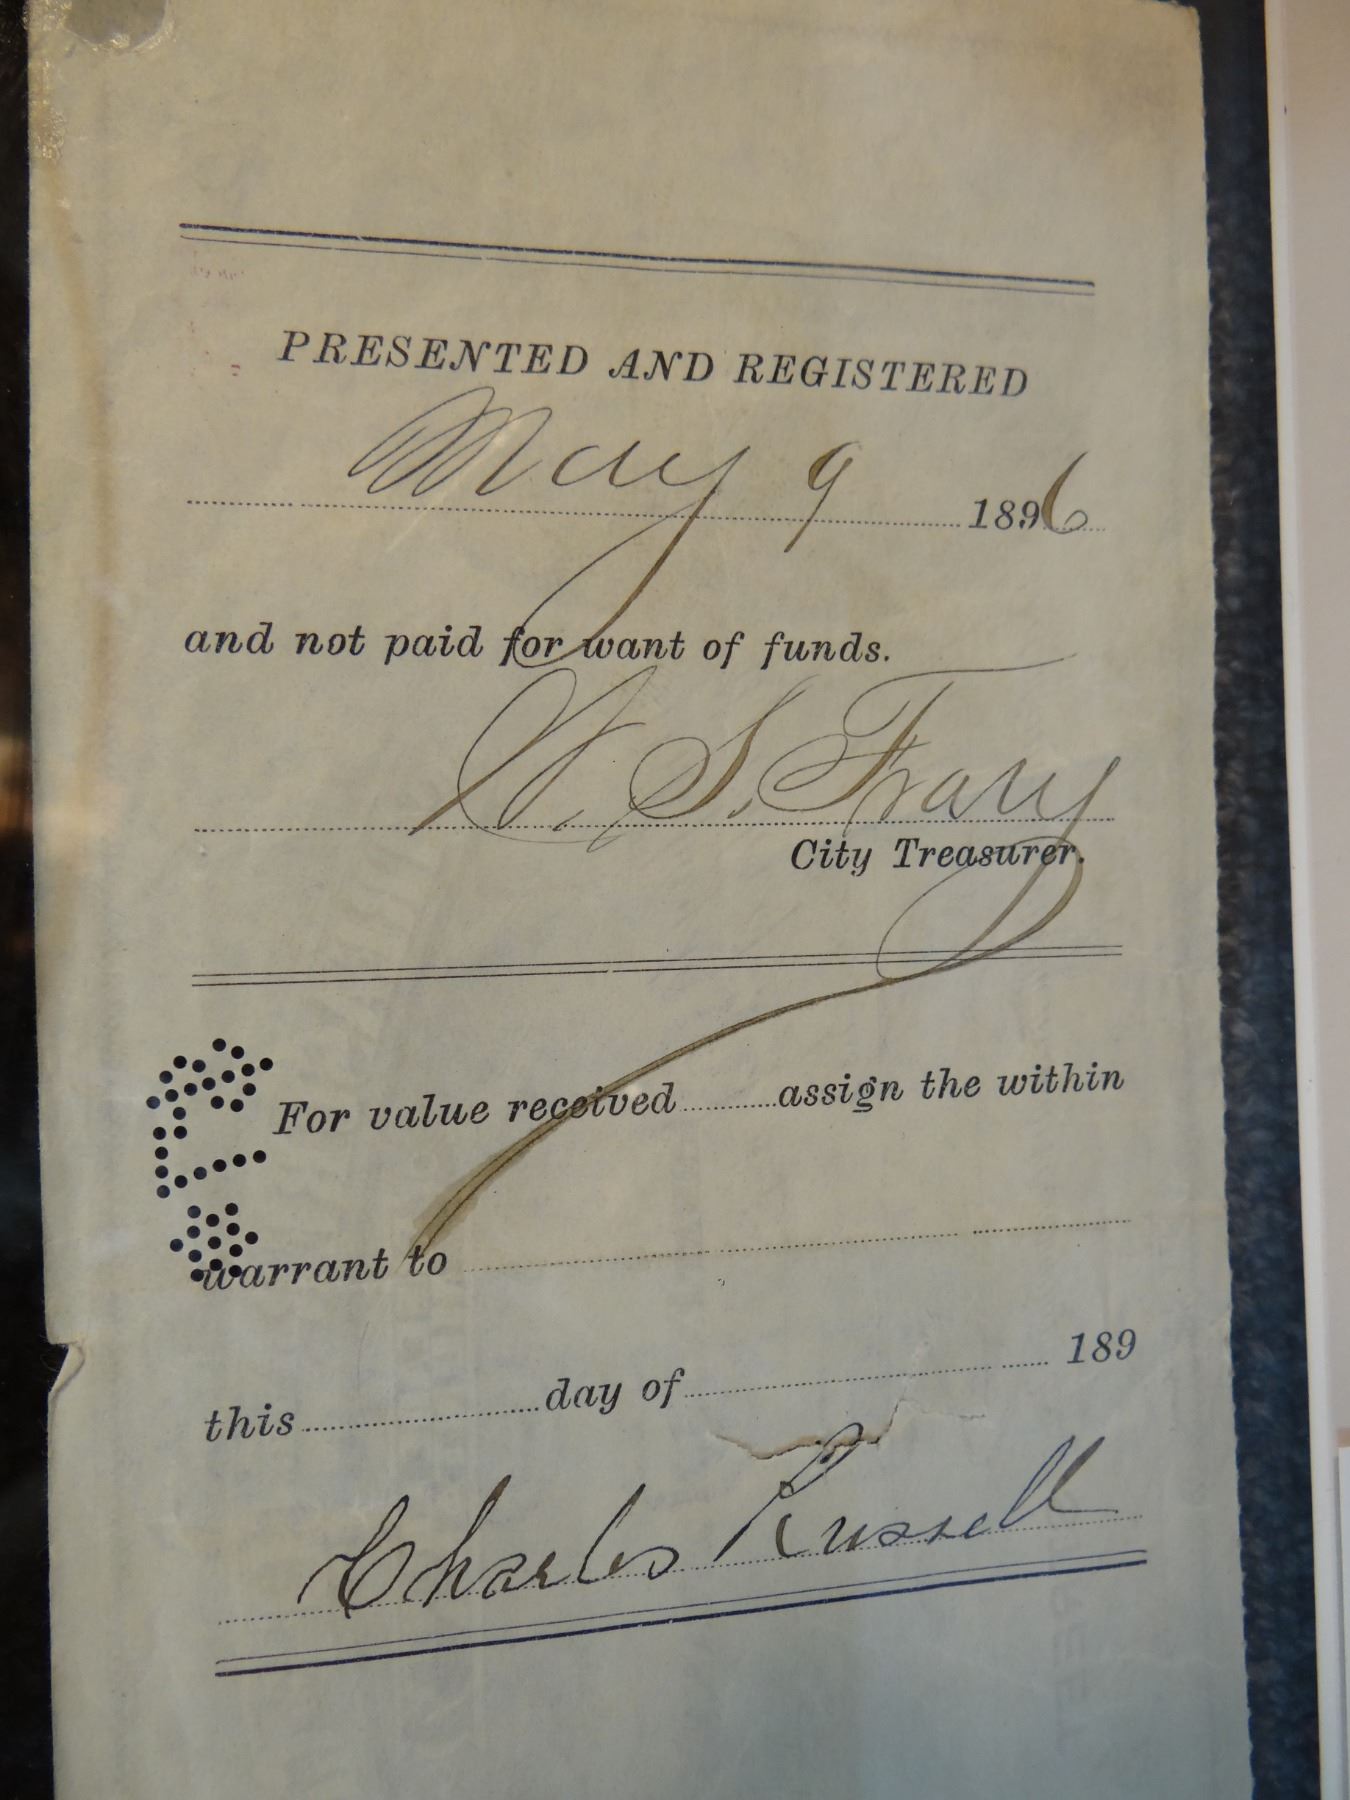 PRESENTED AND REGISTERED
May 9 1896
and not paid for want of funds.
W. S. Frary
City Treasurer.
For value received assign the within
warrant to
this day of 189
Charles Russell